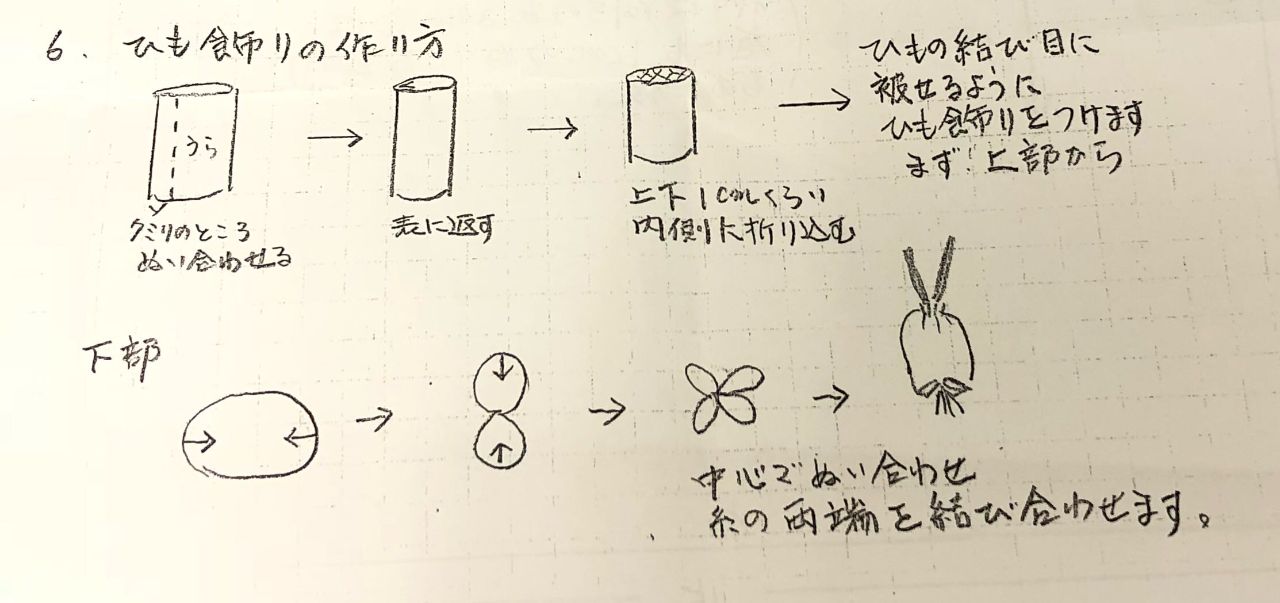 6. ひも飾りの作り方
うら
クミリのところ
ぬい合わせる
表に返す
上下1cmくらい
内側に折り込む
ひもの結び目に
被せるように
ひも飾りをつけます
まず上部から
下部
中心でぬい合わせ
糸の両端を結び合わせます。